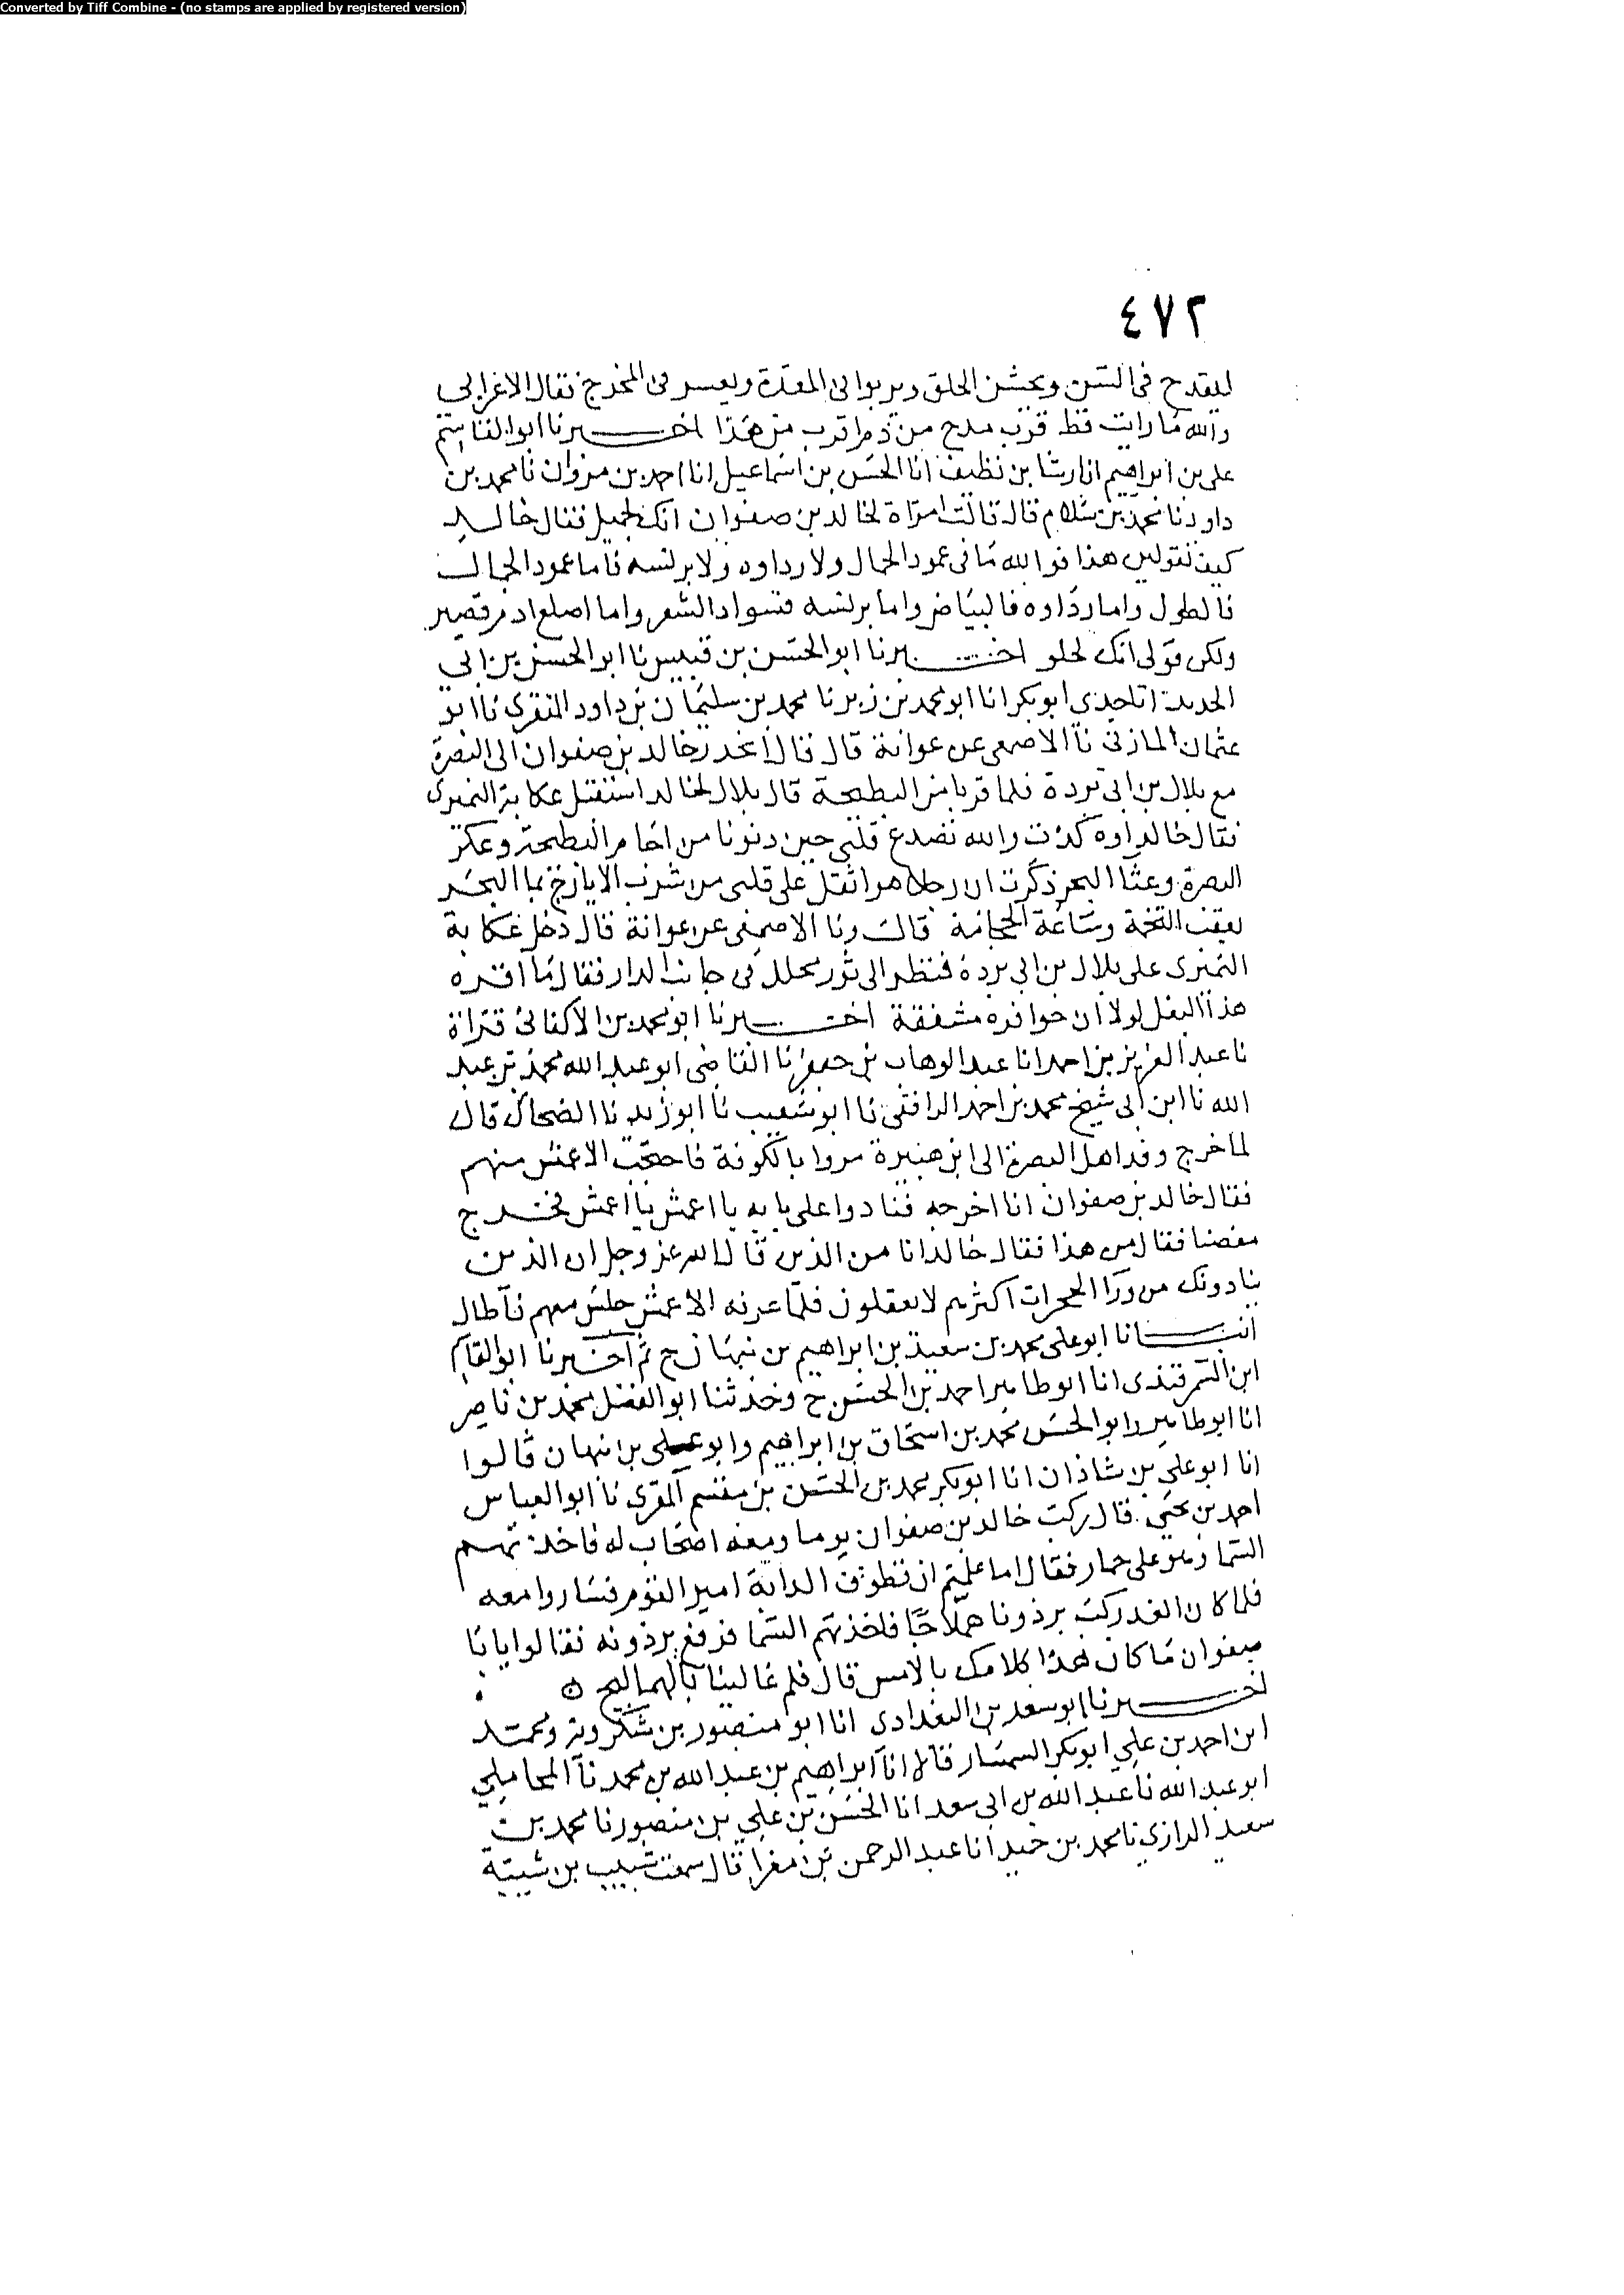 Converted by Tiff Combine - (no stamps are applied by registered version)
٤٧٢
ليقدح فى السن ويخشن الحلق ويربوا فى المعدة ويعسر فى المخرج فقال الاعرابى
والله ما رايت قط قرب مدح من ذم اقرب من هذا اخبرنا ابو القاسم
على بن ابراهيم انا رشا بن نظيف انا الحسن بن اسماعيل انا احمد بن مروان نا محمد بن
داود نا محمد بن سلام قال قالت امراة لخالد بن صفوان انك لجميل فقال خالد
كيف تقولين هذا فوالله ما فى عمود الجمال ولا رداوه ولا برنسه فاما عمود الجمال
فالطول واما رداوه فالبياض واما برنسه فسواد الشعر واما اصلع ادم قصير
ولكن قولى انك لحلو اخبرنا ابو الحسن بن قبيس نا ابو الحسن بن ابى
الحديد انا جدى ابو بكر انا ابو محمد بن زبر نا محمد بن سليمان بن داود المنقرى نا ابو
عثمان المازنى نا الاصمعى عن عوانة قال قال انحدر خالد بن صفوان الى البصرة
مع بلال بن ابى بردة فلما قربا من البطيحة قال بلال لخالد استقتل عكابة النميرى
فقال خالد اوه كدت والله تصدع قلبى حين دنونا من اجام البطيحة وعكر
البصرة وغثا البحر ذكرت ان رجلا هو اثقل على قلبى من شرب الايارج بما البحر
بعقب التخمة وساعة الحجامة قال ونا الاصمعى عن عوانة قال دخل عكابة
النميرى على بلال بن ابى بردة فنظر الى ثور مجلل فى جانب الدار فقال ما افره
هذا البغل لولا ان حوافره مشققة اخبرنا ابو محمد بن الاكفانى قراة
نا عبد العزيز بن احمد انا عبد الوهاب بن جعفر نا القاضى ابو عبد الله محمد بن عبد
الله نا ابن ابى شيخ محمد بن احمد الرافقى نا ابو شعيب نا ابو زيد نا الضحاك قال
لما خرج وفد اهل البصرة الى ابن هبيرة مروا بالكوفة فاحتجب الاعمش منهم
فقال خالد بن صفوان انا اخرجه فنادوا على بابه يا اعمش يا اعمش فخرج
مغضبا فقال من هذا فقال خالد انا من الذين قال الله عز وجل ان الذين
ينادونك من ورا الحجرات اكثرهم لا يعقلون فلما عرفه الاعمش جلس معهم فاطال
انبانا ابو على محمد بن سعيد بن ابراهيم بن نبهان ح ثم اخبرنا ابو القاسم
ابن السمرقندى انا ابو طاهر احمد بن الحسن ح وحدثنا ابو الفضل محمد بن ناصر
انا ابو طاهر وابو الحسن محمد بن اسحاق بن ابراهيم وابو على بن نبهان قالوا
انا ابو على بن شاذان انا ابو بكر محمد بن الحسن بن مقسم المقرى نا ابو العباس
احمد بن يحيى قال ركب خالد بن صفوان يوما ومعه اصحاب له فاخذتهم
السما وهو على حمار فقال اما علمتم ان قطوف الدابة امير القوم فساروا معه
فلما كان الغد ركب برذونا هملاجا فاخذتهم السما فرفع برذونه فقالوا يا با
صفوان ما كان هذا كلامك بالامس قال فلم غالينا بالهماليج
اخبرنا ابو سعد بن البغدادى انا ابو منصور بن شكرويه ومحمد
ابن احمد بن علي ابو بكر السمسار قالا انا ابراهيم بن عبد الله بن محمد نا المحاملي
ابو عبد الله نا عبد الله بن ابى سعد انا الحسن بن علي بن منصور نا محمد بن
سعيد الرازي نا محمد بن حميد انا عبد الرحمن بن مغرا قال سمعت شبيب بن شيبة